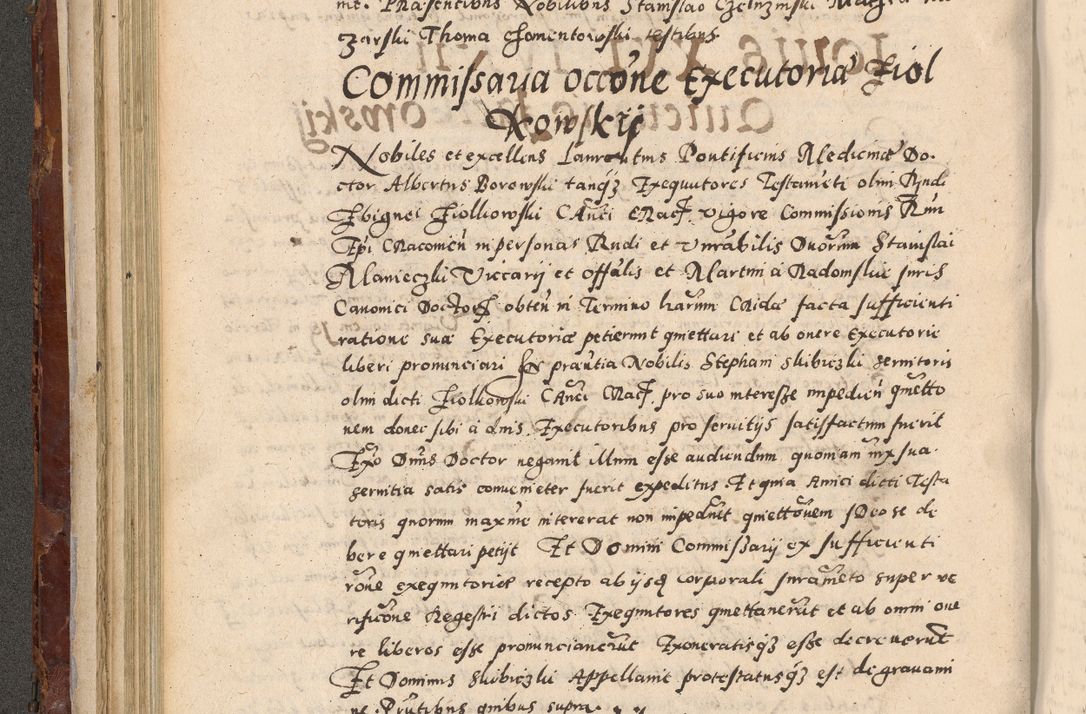 nte. Praesentibus Nobilibus Stanislao
zarski Thoma Chomentowski testibus
Commissaria occone Executoria Fiol
kowskij
Nobiles et excellens Laurentius Pontificius Medicinae Do-
ctor Albertus Borowski tanqz Exequutores Testamenti olim Rndi
Zbignei Fiolkowski Canci Crac. vigore Commissionis Rmi
Epi Cracovien in personas Rndi et Venrabilis Duorum Stanislai
Manieczki Viccarij et Offalis et Martini a Radomskie juris
Canonici Doctor obten in Termino harum Cride facta sufficienti
ratione suae Executoriae petierunt quiettari et ab onere Executorie
liberi pronunciari Ex praentia Nobilis Stephani Skibiczki servitoris
olim dicti Fiolkowski Canci Crac. pro suo interesse impedien quietto
nem donec sibi a dnis Executoribus pro servitijs satisfactum fuerit
Exo Dnus Doctor negavit illum esse audiendum quoniam iux sua
servitia satis convenieter fuerit expeditus Et quia Amici dicti Testa
toris quorum maxime intererat non impediut quiettonem Ideo se de
bere quiettari petijt Et Domini Commissarij ex sufficienti
rone exequutoriae recepto ab ijsdem corporali juramento super ve
rificone Regestri dictos Exequutores quiettaverut et ab omni one
re liberos esse pronunciaverut Exoneratisqz esse decreverut
Et Dominus Skibiczki Appellavit protestatusqz est de gravami
ne Prutibus quibus supra